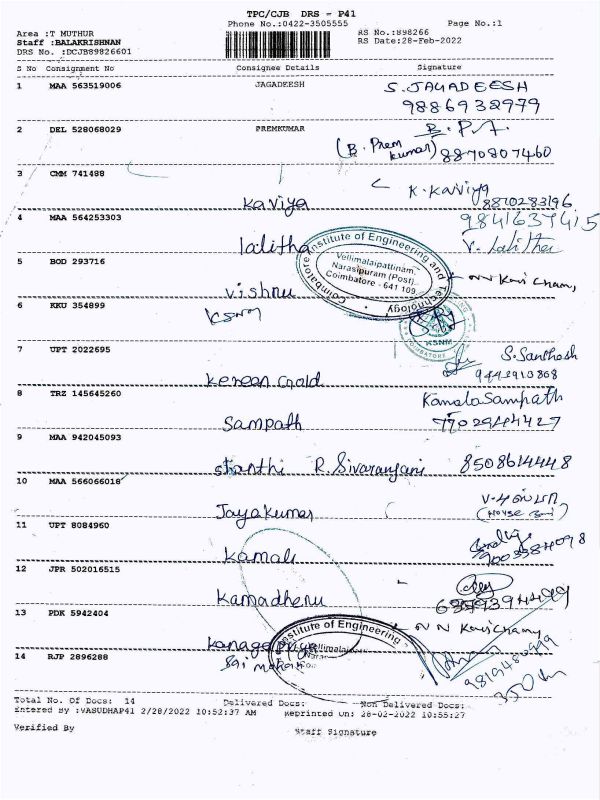 TPC/CJB DRS - P41
Phone No.:0422-3505555
Page No.:1
Area :T MUTHUR
Staff :BALAKRISHNAN
DRS No. :DCJB89826601
RS No.:898266
RS Date:28-Feb-2022
S No Consignment No Consignee Details Signature
1 MAA 563519006 JAGADEESH S. JAYADEESH
9886932979
2 DEL 528068029 PREMKUMAR B. P.
(B. Prem kumar) 8870807460
3 CMM 741488
Kaviya K. Kaviya 8870283196
4 MAA 564253303 9841637415
lalitha V. Lalitha
5 BOD 293716
Vishnu
Coimbatore Institute of Engineering and Technology
Vellimalaipattinam,
Narasipuram (Post),
Coimbatore - 641 109
6 KKU 354899 KSNM
KSNM
COIMBATORE
7 UPT 2022695 S. Santhosh
Kereen Gold 9442910868
8 TRZ 145645260 Kamala Sampath
Sampath 7702944427
9 MAA 942045093
R. Sivaranjani 8508614448
10 MAA 566066018
Jayakumar
11 UPT 8084960
Kamali 9003384098
12 JPR 502016515
Kamadhenu
13 PDK 5942404
Kanagapriya
Institute of Engineering
Vellimalaipa
14 RJP 2896288
Sai
Total No. Of Docs: 14 Delivered Docs: Non Delivered Docs:
Entered By :VASUDHAP41 2/28/2022 10:52:37 AM Reprinted On: 28-02-2022 10:55:27
Verified By Staff Signature